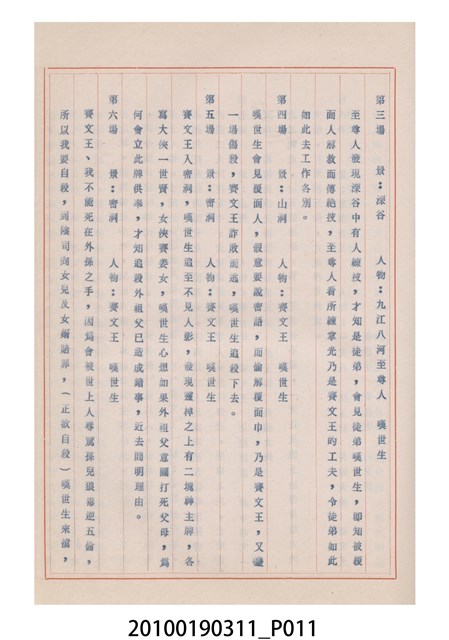 第三場　景：深谷　人物：九江八河至尊人　嘆世生
至尊人發現深谷中有人練技，才知是徒弟，會見徒弟嘆世生，卻知被援
面人解救而傳絕技，至尊人看所練掌光乃是賽文王的工夫，令徒弟如此
如此去工作各別。
第四場　景：山洞　人物：賽文王　嘆世生
嘆世生會見援面人，假意要說密語，而偷解援面巾，乃是賽文王，又變
一場傷殺，賽文王詐敗而逃，嘆世生追殺下去。
第五場　景：密洞　人物：賽文王　嘆世生
賽文王入密洞，嘆世生追至不見人影，發現靈桌之上有二塊神主牌，各
寫大俠一世賢，女俠賽姜女，嘆世生心想如果外祖父意圖打死父母，為
何會立此牌供奉，才知追殺外祖父已造成錯事，近去問明理由。
第六場　景：密洞　人物：賽文王　嘆世生
賽文王、我不能死在外孫之手，因為會被世上人辱罵孫兒狼毒逆五倫，
所以我要自殺，到陰司向女兒及女婿賠罪，（正欲自殺）嘆世生來擋，
20100190311_P011